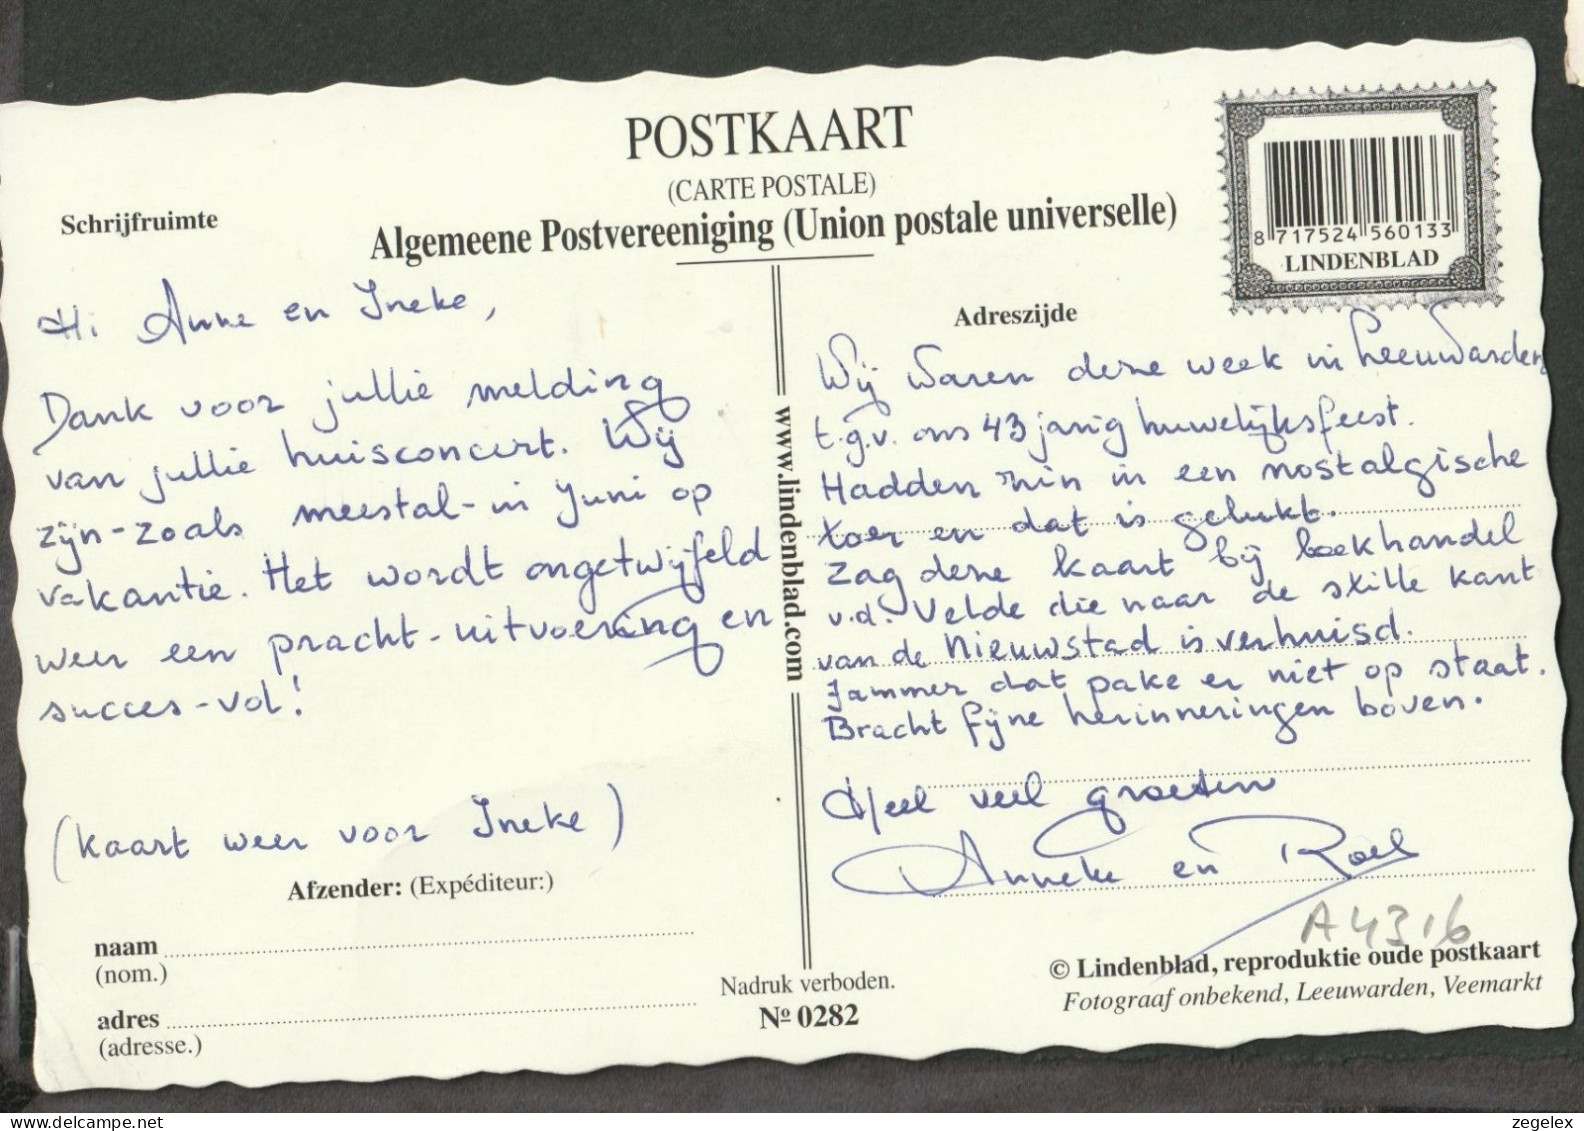 POSTKAART
(CARTE POSTALE)
Algemeene Postvereeniging (Union postale universelle)
Schrijfruimte
8 717524 560133
LINDENBLAD
Adreszijde
Hi Anne en Ineke,
Dank voor jullie melding
van jullie huisconcert. Wij
zijn-zoals meestal-in Juni op
vakantie. Het wordt ongetwijfeld
weer een pracht-uitvoering en
succes-vol!
(kaart weer voor Ineke)
Afzender: (Expéditeur:)
naam
(nom.)
adres
(adresse.)
www.lindenblad.com
Wij waren deze week in Leeuwarden
t.g.v. ons 43 jarig huwelijksfeest.
Hadden zin in een nostalgische
toer en dat is gelukt.
Zag deze kaart bij boekhandel
v.d. Velde die naar de stille kant
van de Nieuwstad is verhuisd.
Jammer dat pake er niet op staat.
Bracht fijne herinneringen boven.
Heel veel groeten
Anneke en Roel
A4316
Nadruk verboden.
№ 0282
© Lindenblad, reproduktie oude postkaart
Fotograaf onbekend, Leeuwarden, Veemarkt
www.delcampe.net
zegelex